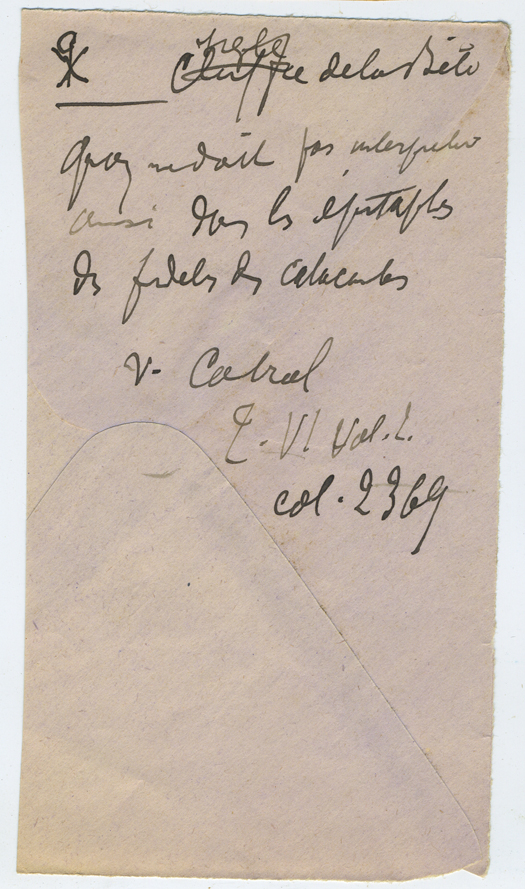 Chiffre de la Bête
qu'on ne doit pas interpréter
ainsi dans les épitaphes
des fidèles des catacombes
V. Cabrol
T. VI Vol. 2.
col. 2369